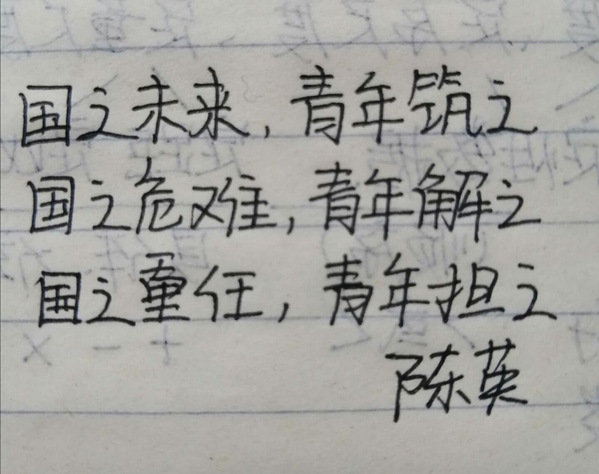 国之未来,青年筑之
国之危难,青年解之
国之重任,青年担之
陈英